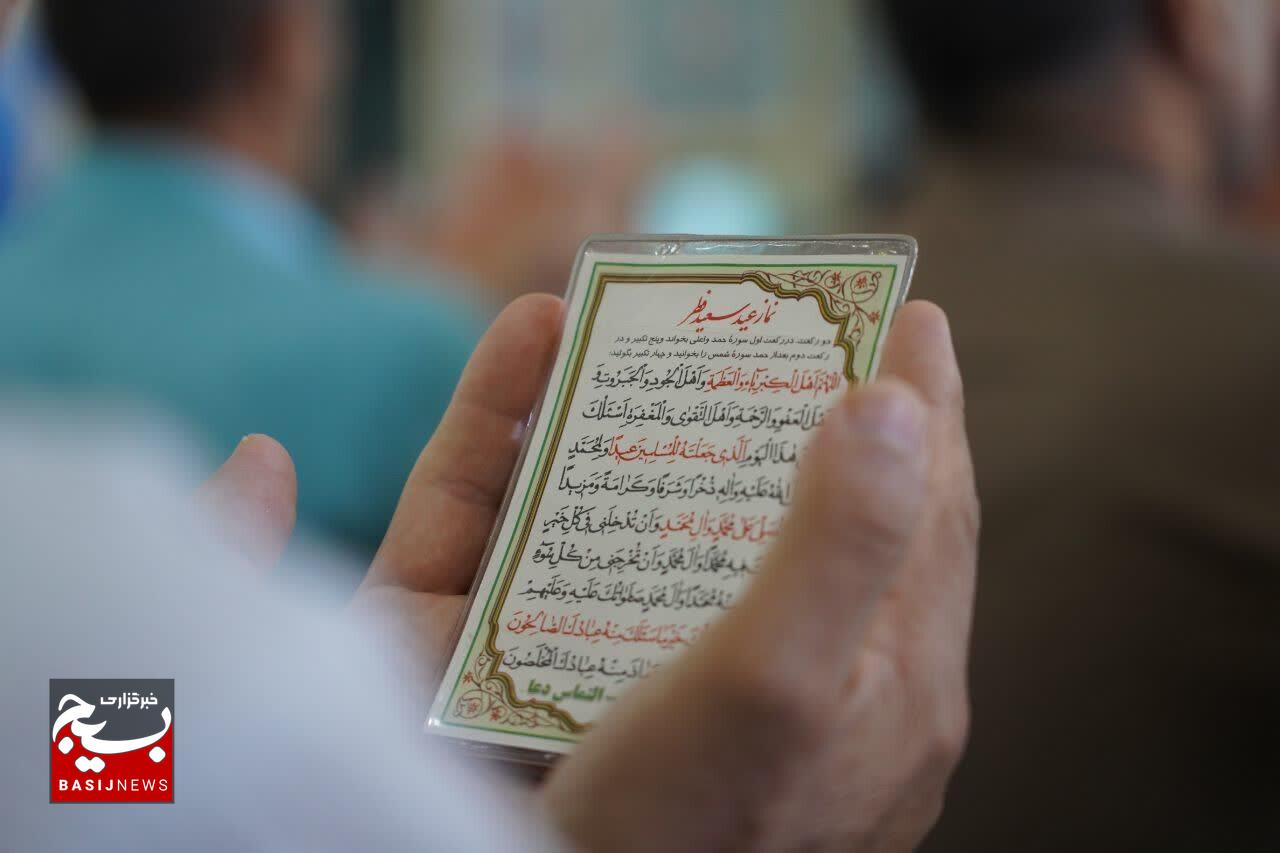 نماز عید سعید فطر
دو رکعت، در رکعت اول سورۀ حمد واعلی بخواند وپنج تکبیر و در
رکعت دوم بعداز حمد سورۀ شمس را بخوانید و چهار تکبیر بگوئید:
اَللّٰهُمَّ اَهْلَ الْكِبْرِيٰاءِ وَالْعَظَمَةِ وَاَهْلَ الْجُودِ وَالْجَبَرُوتِ وَ
اَهْلَ الْعَفْوِ وَالرَّحْمَةِ وَاَهْلَ التَّقْوٰى وَالْمَغْفِرَةِ اَسْئَلُكَ
هٰذَا الْيَوْمِ الَّذى جَعَلْتَهُ لِلْمُسْلِمينَ عيدًا وَلِمُحَمَّدٍ
اللهُ عَلَيْهِ وَالِهِ ذُخْرًا وَشَرَفًا وَكَرامَةً وَمَزيدًا
عَلىٰ مُحَمَّدٍ وَالِ مُحَمَّدٍ وَاَنْ تُدْخِلَنى فى كُلِّ خَيْرٍ
فيهِ مُحَمَّدًا وَالَ مُحَمَّدٍ وَاَنْ تُخْرِجَنى مِنْ كُلِّ سُوٓءٍ
مُحَمَّدًا وَالَ مُحَمَّدٍ صَلَوٰاتُكَ عَلَيْهِ وَعَلَيْهِمْ
خَيْرَ مٰا سَئَلَكَ مِنْهُ عِبٰادُكَ الصّٰالِحُونَ
مِنْهُ عِبٰادُكَ الْمُخْلَصُونَ
- التماس دعا
خبرگزاری
بسیج
BASIJNEWS